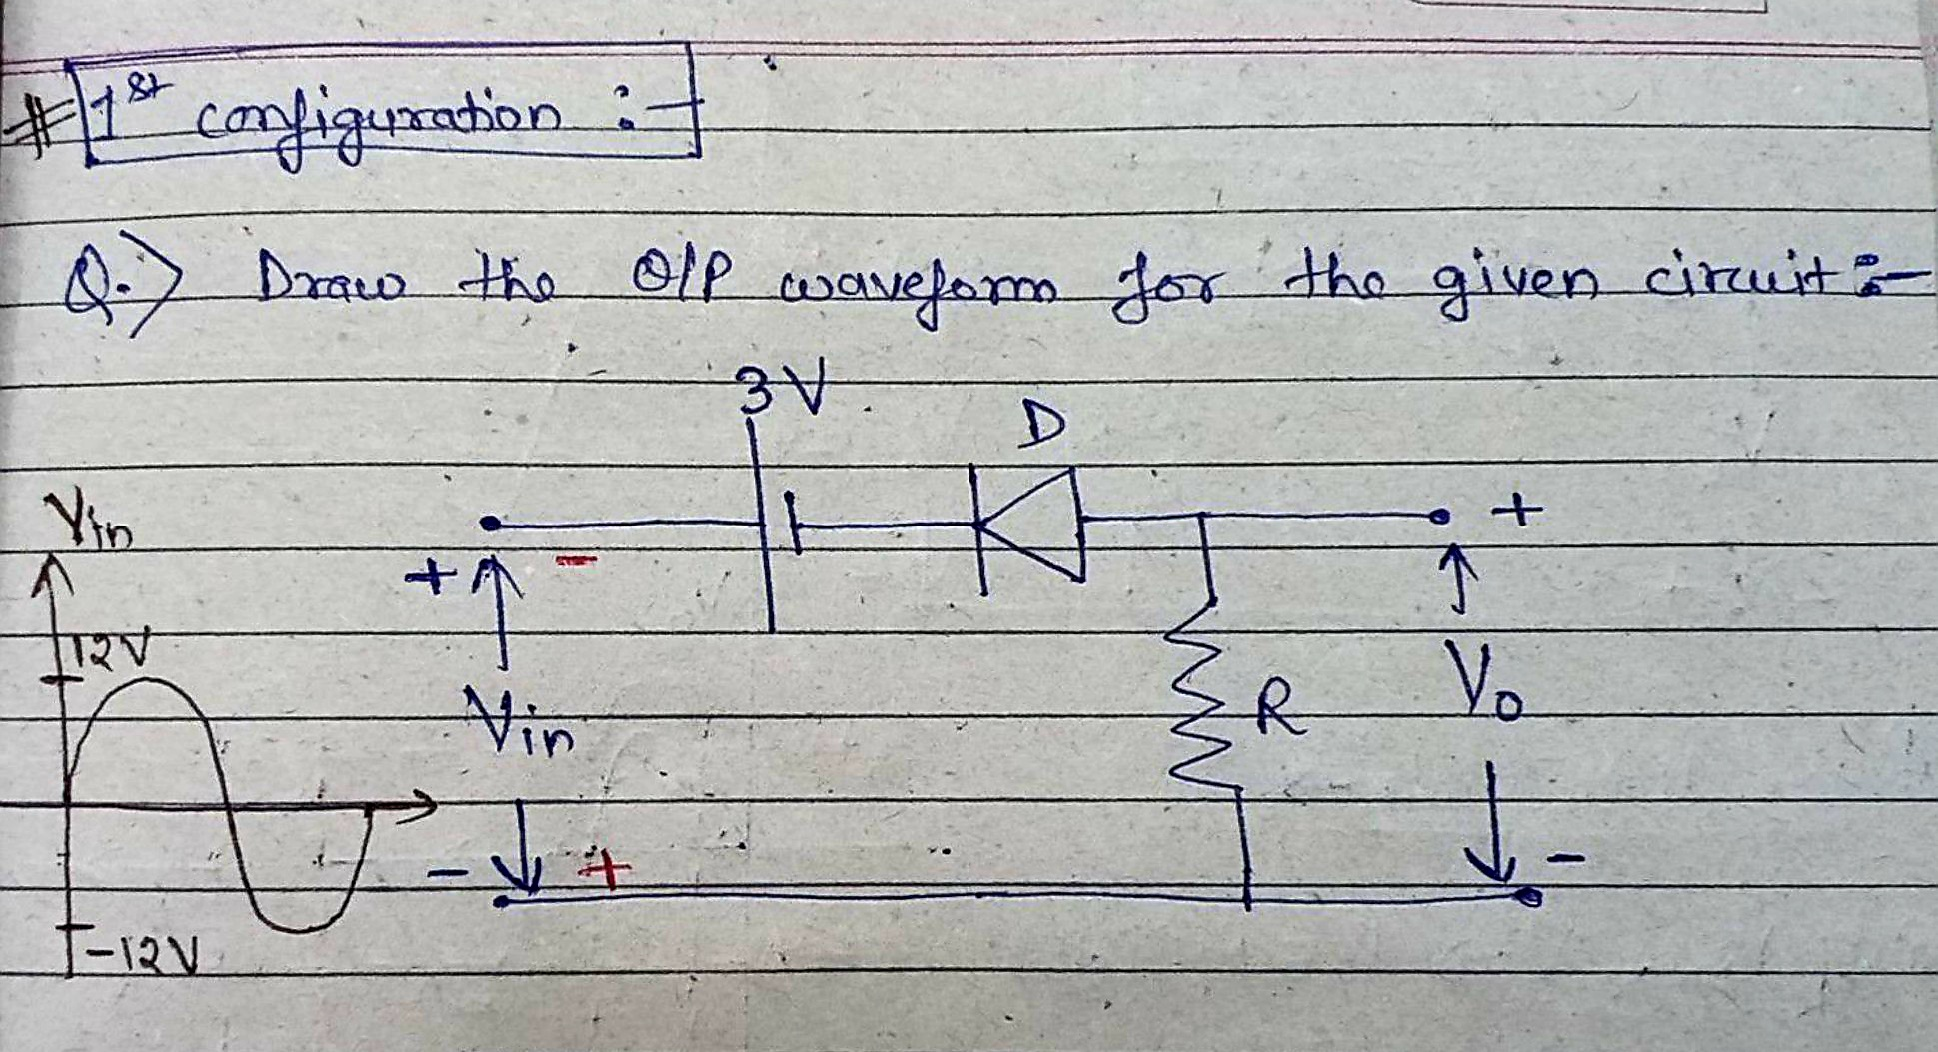 # 1st configuration :-
Q.> Draw the O/P waveform for the given circuit :-
3V
D
Vin
+
-
+
12V
Vin
R
Vo
-
+
-
-12V